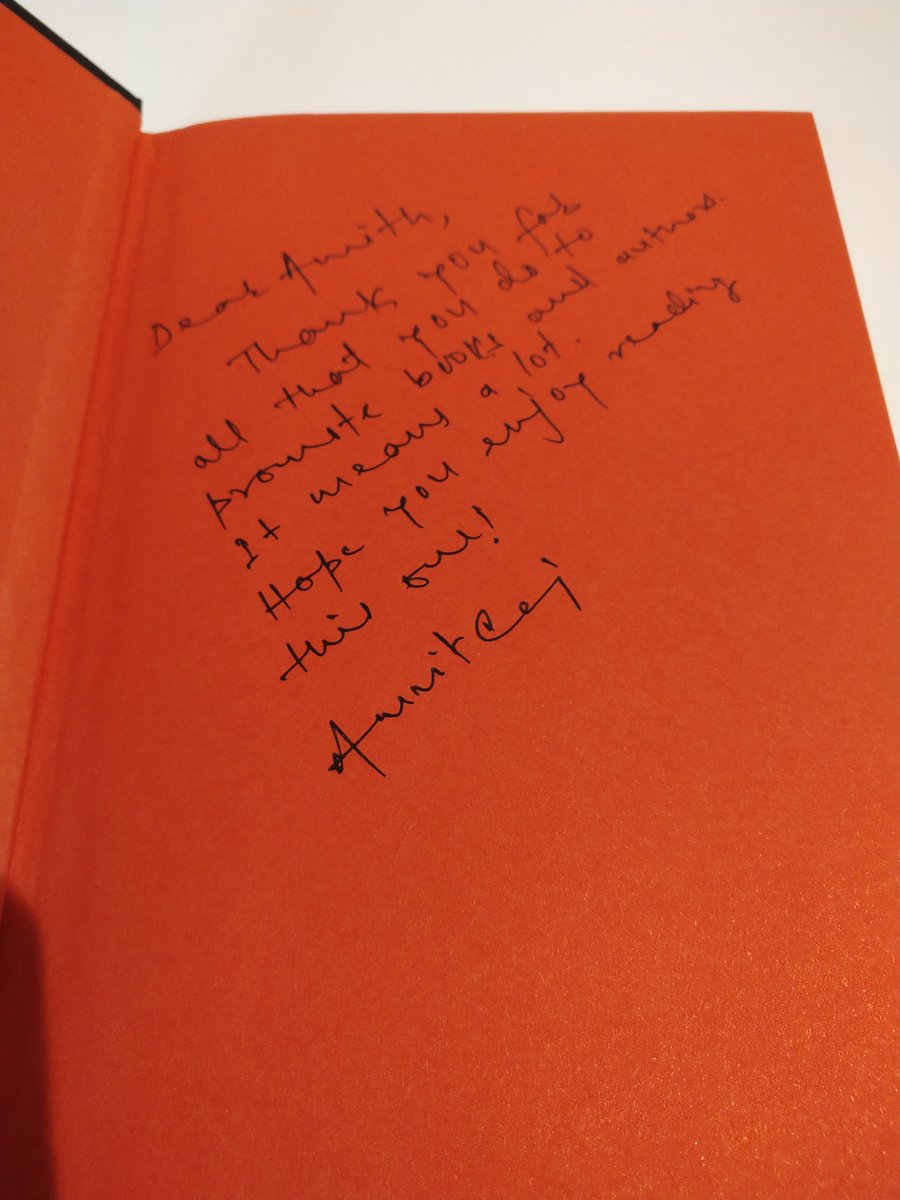 Dear Amith,
Thank you for
all that you do to
promote books and authors.
It means a lot.
Hope you enjoy reading
this one!
Amrit Raj